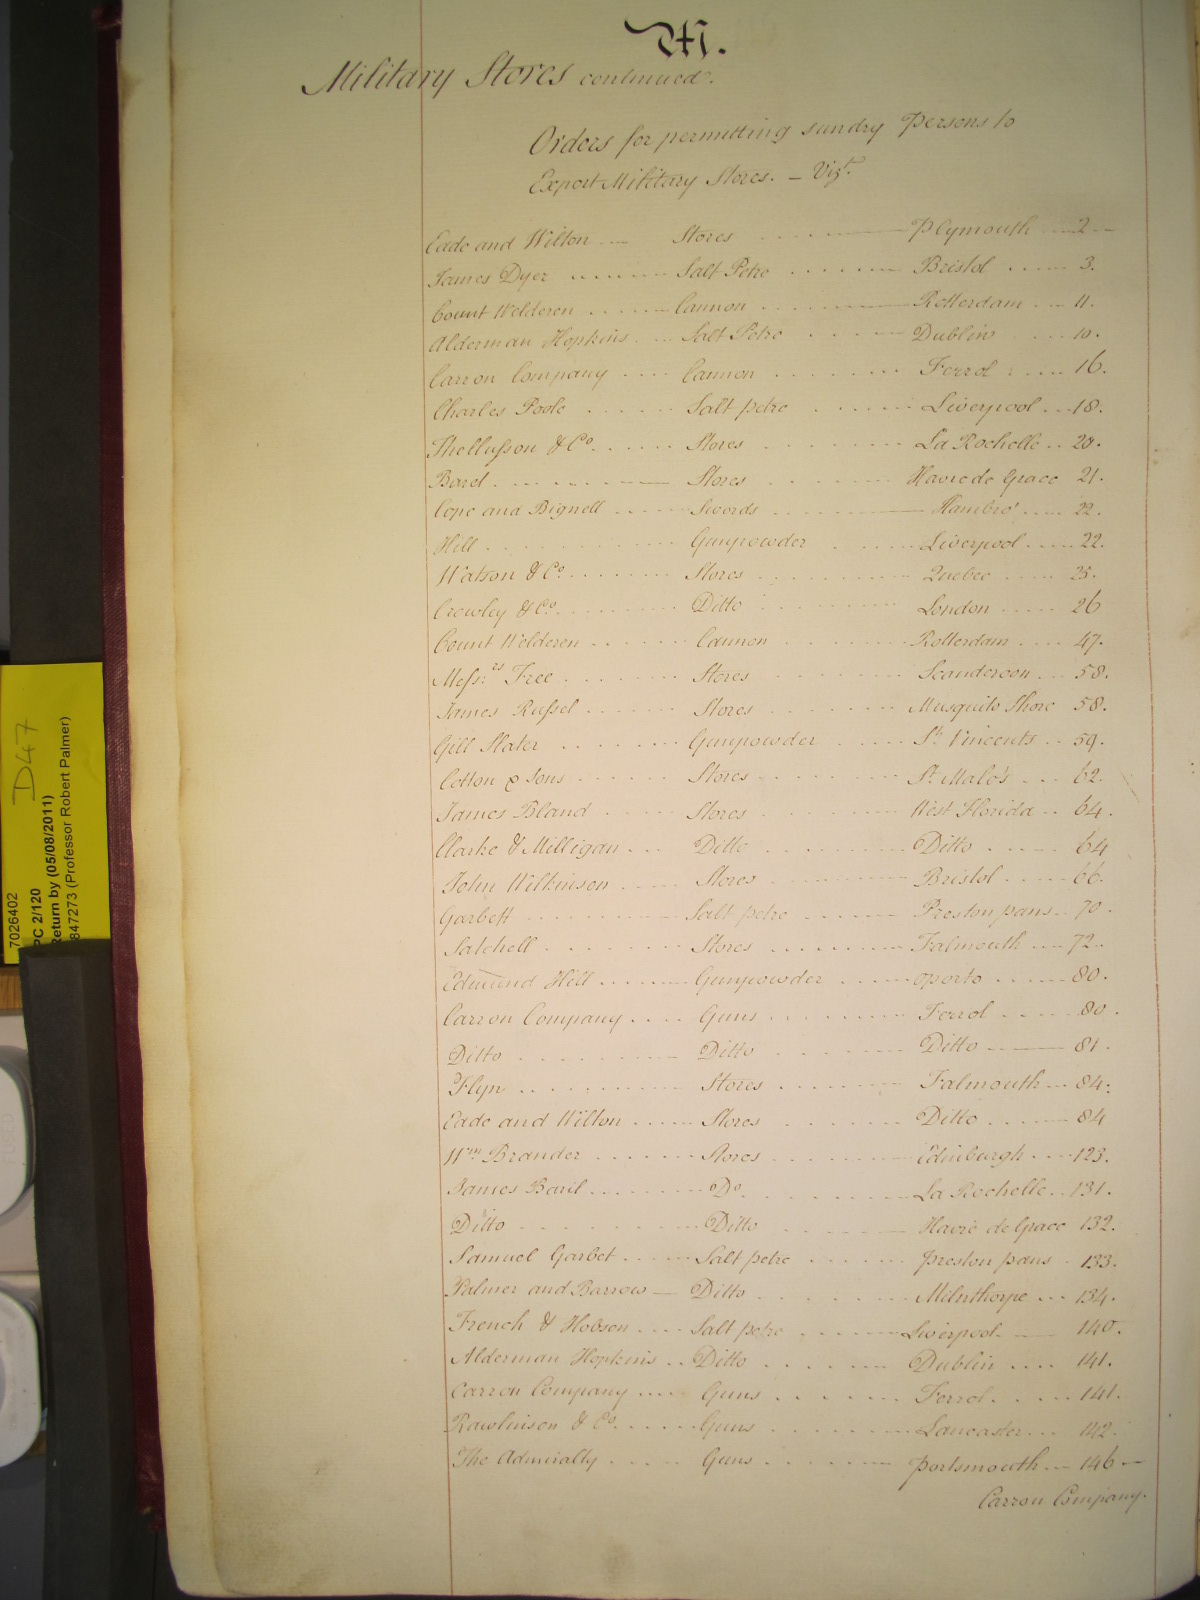 M.
Military Stores continued.
Orders for permitting sundry Persons to
Export Military Stores. – Vizt.
Eade and Wilton Stores Plymouth 2
James Dyer Salt Petre Bristol 3.
Count Welderen Cannon Rotterdam 11.
Alderman Hopkins Salt Petre Dublin 10.
Carron Company Cannon Ferrol 16.
Charles Poole Salt petre Liverpool 18.
Thellusson & Co. Stores La Rochelle 20.
Baril Stores Havre de Grace 21.
Cope and Bignell Swords Hambro' 22.
Hill Gunpowder Liverpool 22.
Watson & Co. Stores Quebec 25.
Crowley & Co. Ditto London 26
Count Welderen Cannon Rotterdam 47.
Messrs. Free Stores Scanderoon 58.
James Russel Stores Musquito Shore 58.
Gill Slater Gunpowder St. Vincents 59.
Cotton & Sons Stores St. Malo's 62.
James Bland Stores West Florida 64.
Clarke & Milligan Ditto Ditto 64
John Wilkinson Stores Bristol 66.
Garbett Salt petre Preston pans 70.
Satchell Stores Falmouth 72.
Edmund Hill Gunpowder Oporto 80.
Carron Company Guns Ferrol 80.
Ditto Ditto Ditto 81.
Flyn Stores Falmouth 84.
Eade and Wilton Stores Ditto 84
Wm. Brander Stores Edinburgh 123.
James Baril Do. La Rochelle 131.
Ditto Ditto Havre de Grace 132.
Samuel Garbet Salt petre Preston pans 133.
Palmer and Barrow Ditto Milnthorpe 134.
French & Hobson Salt petre Liverpool 140.
Alderman Hopkins Ditto Dublin 141.
Carron Company Guns Ferrol 141.
Rawlinson & Co. Guns Lancaster 142.
The Admiralty Guns Portsmouth 146
Carron Company.
D47
7026402
PC 2/120
Return by (05/08/2011)
847273 (Professor Robert Palmer)